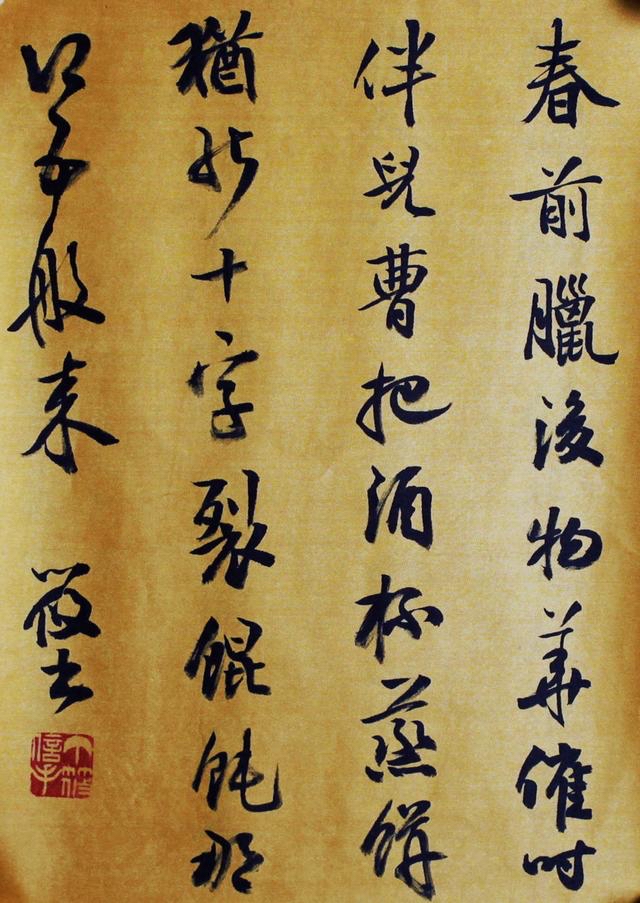 春前臘後物華催时
伴兒曹把酒杯蒸餅
猶能十字裂餛飩那
得五般来
筱